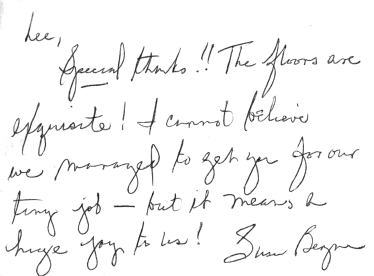 Lee,
Special thanks!! The floors are
exquisite! I cannot believe
we managed to get you for our
tiny job — but it means a
huge joy to us! Susan